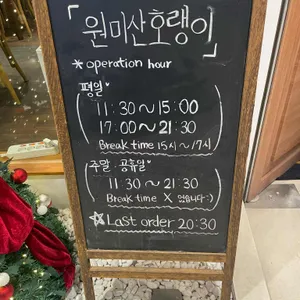 원미산호랭이
*operation hour
평일
11:30~15:00
17:00~21:30
Break time 15시~17시
주말·공휴일
11:30~21:30
Break time X 없습니다:)
☆Last order 20:30